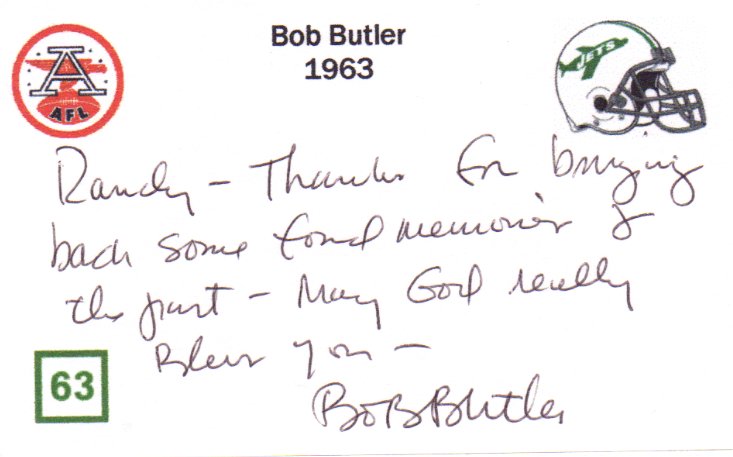 Bob Butler
1963
A
AFL
JETS
Randy - Thanks for bringing
back some fond memories of
the past - May God really
Bless you -
63
Bob Butler